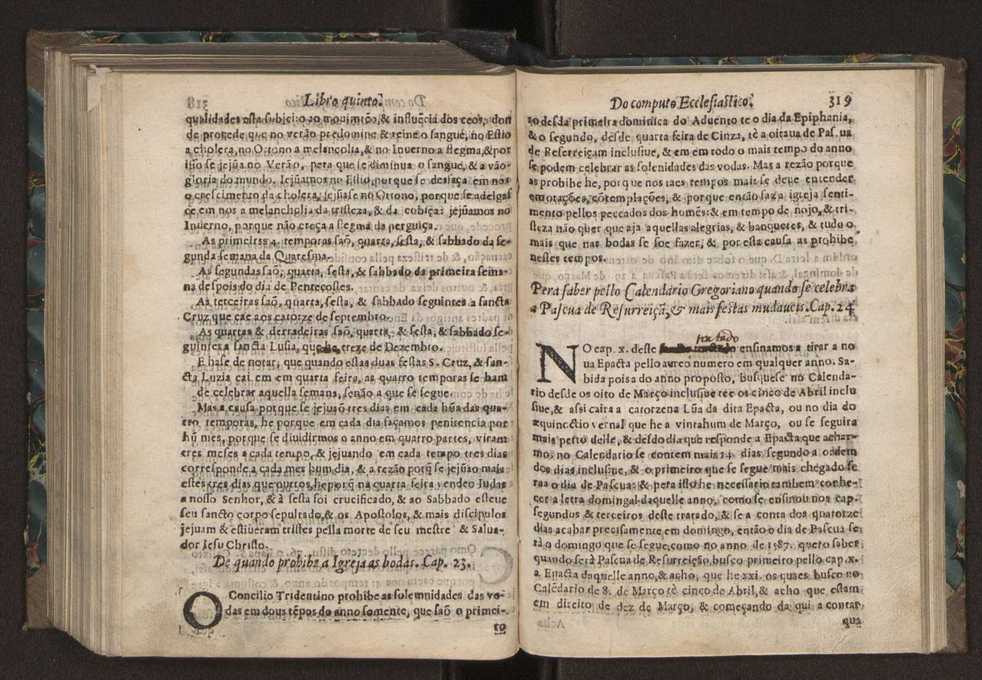 318
Libro quinto.
qualidades esta subieito ao mouimẽto, & influẽcia dos ceos, don
de procede que no verão predomine & reine o sangue, no Estio
a cholera, no Otono a melancolia, & no Inuerno a flegma, & por
isso se jejũa no Verão, pera que se diminua o sangue, & a vão-
gloria do mundo. Iejũamos no Estio, porque se desfaça em nós
o crescimento da cholera, jejũase no Otono, porque se adelgaſ
ce em nos a melancholia da tristeza, & da cobiça: jejũamos no
Inuerno, porque não creça a flegma da perguiça.
As primeiras 4. temporas saõ, quarta, sesta, & sabbado da se-
gunda semana da Quaresma.
As segundas saõ, quarta, sesta, & sabbado da primeira sema-
na despois do dia de Pentecostes.
As terceiras saõ, quarta, sesta, & sabbado seguintes a sancta
Cruz que cae aos catorze de septembro.
As quartas & derradeiras saõ, quarta, & sesta, & sabbado se-
guintes a sancta Lusia, que he treze de Dezembro.
E hase de notar, que quando estas duas festas S. Cruz, & san-
cta Luzia cai em em quarta feira, as quatro temporas se ham
de celebrar aquella semans, senão a que se segue.
Mas a causa porque se jejuaõ tres dias em cada hũa das qua-
tro temporas, he porque em cada dia façamos penitencia por
hũ mes, porque se diuidirmos o anno em quatro partes, viram
tres meses a cada tempo, & jejuando em cada tempo tres dias
corresponde a cada mes hum dia, & a rezão porq̃ se jejuão mais
estes tres dias que outros, he porq̃ na quarta feira vendeo Iudas
a nosso Senhor, & á sesta foi crucificado, & ao Sabbado esteue
seu sancto corpo sepultado, & os Apostolos, & mais discipulos
jejuam & estiueram tristes pella morte de seu mestre & Salua-
dor Iesu Christo.
De quando prohibe a Igreja as bodas. Cap. 23.
O Concilio Tridentino prohibe as solemnidades das vo-
das em dous tẽpos do anno somente, que saõ o primei-
ro
Do computo Ecclesiastico.
319
ro desda primeira dominica do Aduento te o dia da Epiphania,
& o segundo, desde quarta feira de Cinza, tè a oitaua de Pascua
de Reserreiçam inclusiue, & em em todo o mais tempo do anno
se podem celebrar as solenidades das vodas. Mas a rezão porque
as prohibe he, porque nos taes tempos mais se deue entender
em oraçoẽs, cõtemplações, & porque então faz a igreja senti-
mento pellos peccados dos homẽs: & em tempo de nojo, & tri-
steza não quer que aja aquellas alegrias, & banquetes, & tudo o
mais que nas bodas se soe fazer, & por esta causa as prohibe
nestes tempos.
Pera saber pello Calendario Gregoriano quando se celebra
a Pascua de Resurreiçã, & mais festas mudaueis. Cap. 24
tratado
NO cap. x. deste ensinamos a tirar a no
ua Epacta pello aureo numero em qualquer anno. Sa-
bida pois a do anno proposto, busquese no Calenda-
rio desde os oito de Março inclusiue tee os cinco de Abril inclu
siue, & assi caira a catorzena Lũa da dita Epacta, ou no dia do
æquinoctio vernal que he a vintahum de Março, ou se seguira
mais perto delle, & desdo dia que responde a Epacta que achar-
mos, no Calendario se contem mais 14. dias segundo a ordem
dos dias inclusiue, & o primeiro que se segue mais chegado se
ra o dia de Pascua: & pera isto he necessario tambem conhe-
cer a letra domingal daquelle anno, como se ensinou nos cap.
segundos & terceiros deste tratado, & se a conta dos quatorze
dias acabar precisamente em domingo, então o dia de Pascua se
rà o domingo que se segue, como no anno de 1587. quero saber
quando será Pascua de Resurreição, busco primeiro pello cap. x.
a Epacta daquelle anno, & acho, que he xxi. os quaes busco no
Calẽdario de 8. de Março tè cinco de Abril, & acho que estam
em direito de dez de Março, & começando da qui a contar
qua